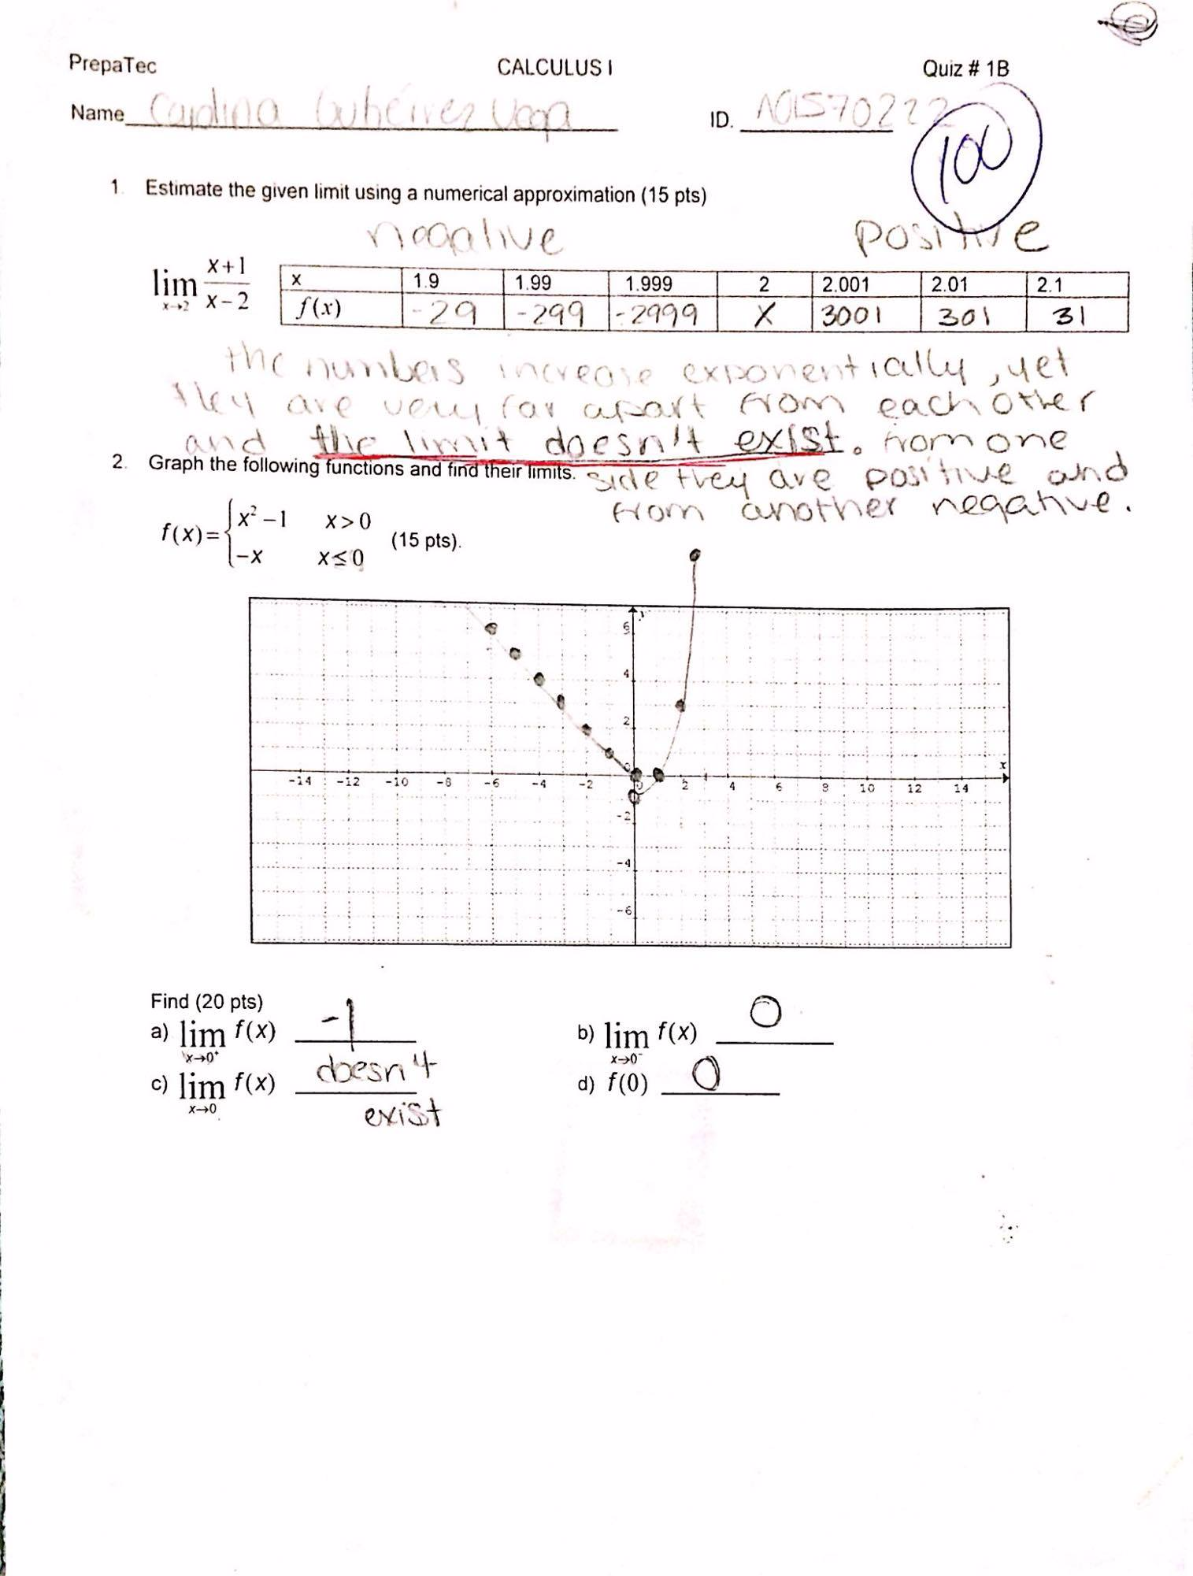 PrepaTec CALCULUS I Quiz # 1B
Name Carolina Gutiérrez Vega ID. A01570222
100
1. Estimate the given limit using a numerical approximation (15 pts)
negative positive
lim x→2 x+1 / x-2
x 1.9 1.99 1.999 2 2.001 2.01 2.1
f(x) -29 -299 -2999 X 3001 301 31
the numbers increase exponentially, yet
they are very far apart from each other
and the limit doesn't exist. From one
2. Graph the following functions and find their limits. side they are positive and
from another negative.
f(x)={ x²-1 x>0
-x x≤0 (15 pts).
y
6
4
2
0
x
-14 -12 -10 -8 -6 -4 -2 0 2 4 6 8 10 12 14
-2
-4
-6
Find (20 pts)
a) lim x→0⁺ f(x) -1 b) lim x→0⁻ f(x) 0
c) lim x→0 f(x) doesn't d) f(0) 0
exist